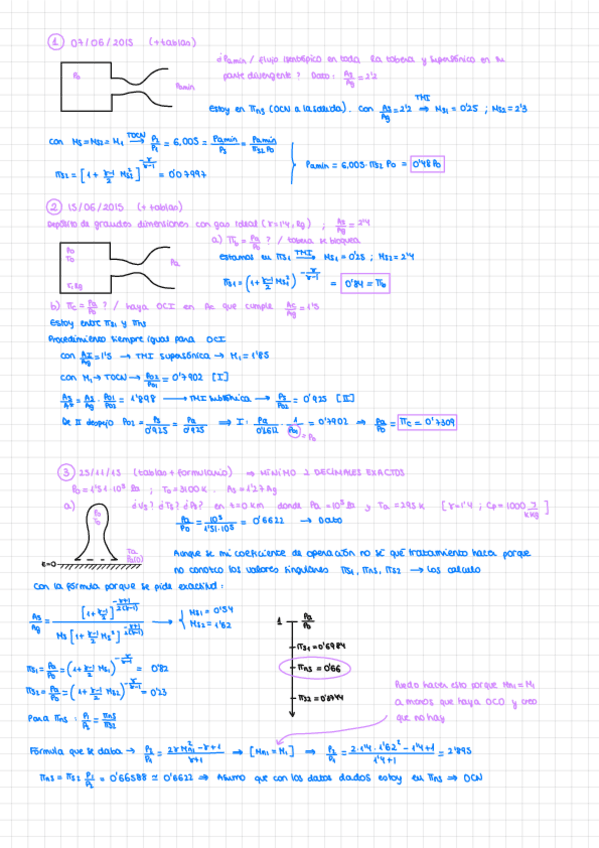 1 07/06/2015 (+tablas)
¿Pamín / flujo isentrópico en toda la tobera y supersónico en su
parte divergente? Dato: As/Ag = 2'2
P0
Pamín
Estoy en πNS (OCN a la salida). Con As/Ag = 2'2 TMI⟶ MS1 = 0'25 ; MS2 = 2'3
Con MS = MS2 = M1 TOCN⟶ P2/P1 = 6.005 = Pamín/Ps = Pamín/πS2 P0
πS2 = [1 + γ-1/2 MS2²]^-γ/γ-1 = 0'07997
Pamín = 6.005·πS2 P0 = 0'48 P0
2 15/06/2015 (+tablas)
Depósito de grandes dimensiones con gas ideal (γ=1'4, Rg) ; As/Ag = 2'4
a) πb = Pa/P0 ? / tobera se bloquea
P0
T0
Pa
γ, Rg
estamos en πS1 TMI⟶ MS1 = 0'25 ; MS2 = 2'4
πS1 = (1 + γ-1/2 MS1²)^-γ/γ-1 = 0'94 = πb
b) πc = Pa/P0 ? / haya OCI en Ac que cumple Ac/Ag = 1'5
Estoy entre πS1 y πNS
Procedimiento siempre igual para OCI
con A1/Ag = 1'5 → TMI supersónica → M1 = 1'85
con M1 → TOCN → P02/P01 = 0'7902 [I]
As/A* = As/Ag · P02/P01 = 1'898 ⟶ TMI subsónica ⟶ Ps/P02 = 0'925 [II]
De II despejo P02 = Ps/0'925 = Pa/0'925 ⟹ I: · 1/P01 = 0'7902 ⇒ Pa/P0 = πc = 0'7309
= P0
3 25/11/13 (tablas + formulario) ⇒ MÍNIMO 2 DECIMALES EXACTOS
P0 = 1'51·10⁵ Pa ; T0 = 3100 K . As = 1'27 Ag
a) ¿Vs? ¿Ts? ¿Ps? en t=0 km donde Pa = 10⁵ Pa y Ta = 293 K [γ=1'4 ; Cp = 1000 J/kg K]
P0
T0
Pa/P0 = 10⁵/1'51·10⁵ = 0'6622 → Dato
Ta
Pa(0)
z=0
Aunque se mi coeficiente de operación no sé qué tratamiento hacer porque
no conozco los valores singulares πS1, πNS, πS2 → los calculo
Con la fórmula porque se pide exactitud:
MS1 = 0'54
MS2 = 1'62
1 Pa/P0
πS1 = Pa/P0 = (1 + γ-1/2 MS1)^-γ/γ-1 = 0'82
πNS = 0'66
πS2 = Pa/P0 = (1 + γ-1/2 MS2)^-γ/γ-1 = 0'23
Para πNS : P2/P1 = πNS/πS2
Puedo hacer esto porque Mn1 = M1
a menos que haya OCO y creo
que no hay
Fórmula que se daba → P2/P1 = 2γMn1² - γ+1/γ+1 → [Mn1 = M1] ⇒ P2/P1 = 2·1'4·1'62² - 1'4+1/1'4+1 = 2'895
πNS = πS2 P2/P1 = 0'66588 ≃ 0'6622 ⇒ Asumo que con los datos dados estoy en πNS ⇒ OCN